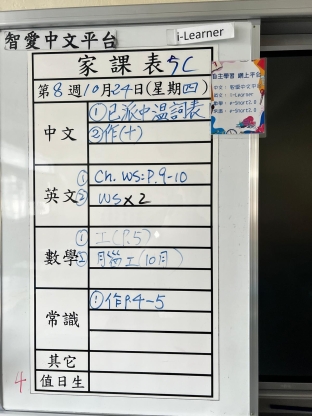 智愛中文平台
i-Learner
家課表 5C
第8週10月24日(星期四)
自主學習 網上平台
中文：智愛中文平台
英文：i-Learner
中文
①已派中溫詞表
②作(十)
英文
① Ch. WS: P.9-10
② WS x 2
數學
① 工(P.5)
工(10月)
常識
①作P.4-5
其它
值日生
4